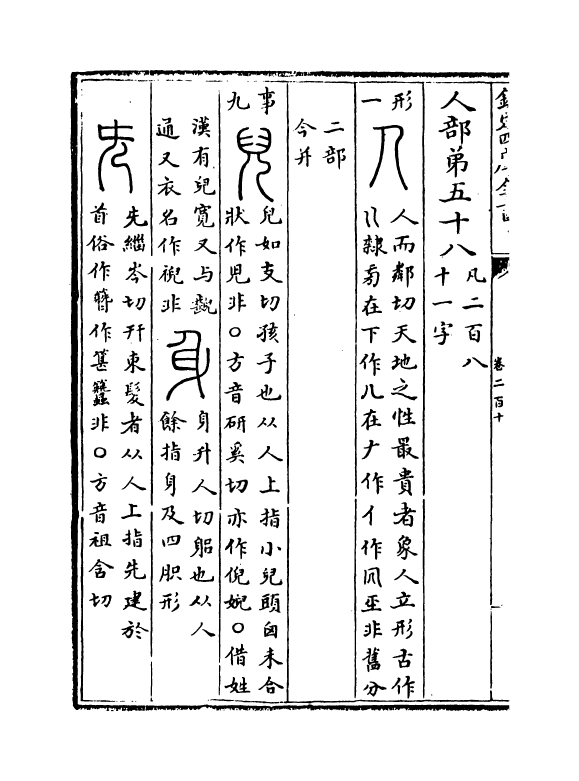 欽定四庫全書
卷二百十
人部第五十八
凡二百八
十一字
形
一
人而鄰切天地之性最貴者象人立形古作
隸旁在下作儿在𠂇作亻作 亚非舊分
二部
今并
事
九
兒如支切孩子也从人上指小兒頭囟未合
狀作児非○方音研奚切亦作倪婗○借姓
漢有兒寬又与齯
通又衣名作 非
身升人切躳也从人
餘指身及四胑形
先緇岑切幵束髮者从人上指先建於
首俗作 作 非○方音祖含切